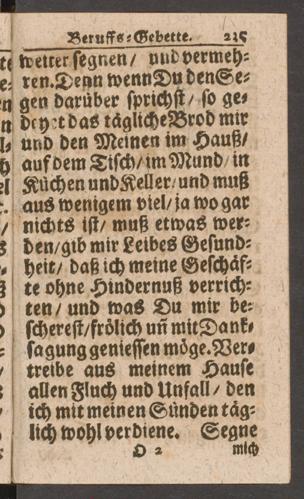 Beruffs-Gebette. 235
weiter segnen / und vermeh-
ren. Denn wenn Du den Se-
gen darüber sprichst / so ge-
deyet das tägliche Brod mir
und den Meinen im Hauß /
auf dem Tisch / im Mund / in
Küchen und Keller / und muß
aus wenigem viel / ja wo gar
nichts ist / muß etwas wer-
den / gib mir Leibes Gesund-
heit / daß ich meine Geschäf-
te ohne Hindernuß verrich-
ten / und was Du mir be-
scherest / frölich uñ mit Dank-
sagung geniessen möge. Ver-
treibe aus meinem Hause
allen Fluch und Unfall / den
ich mit meinen Sünden täg-
lich wohl verdiene. Segne
O 2 mich